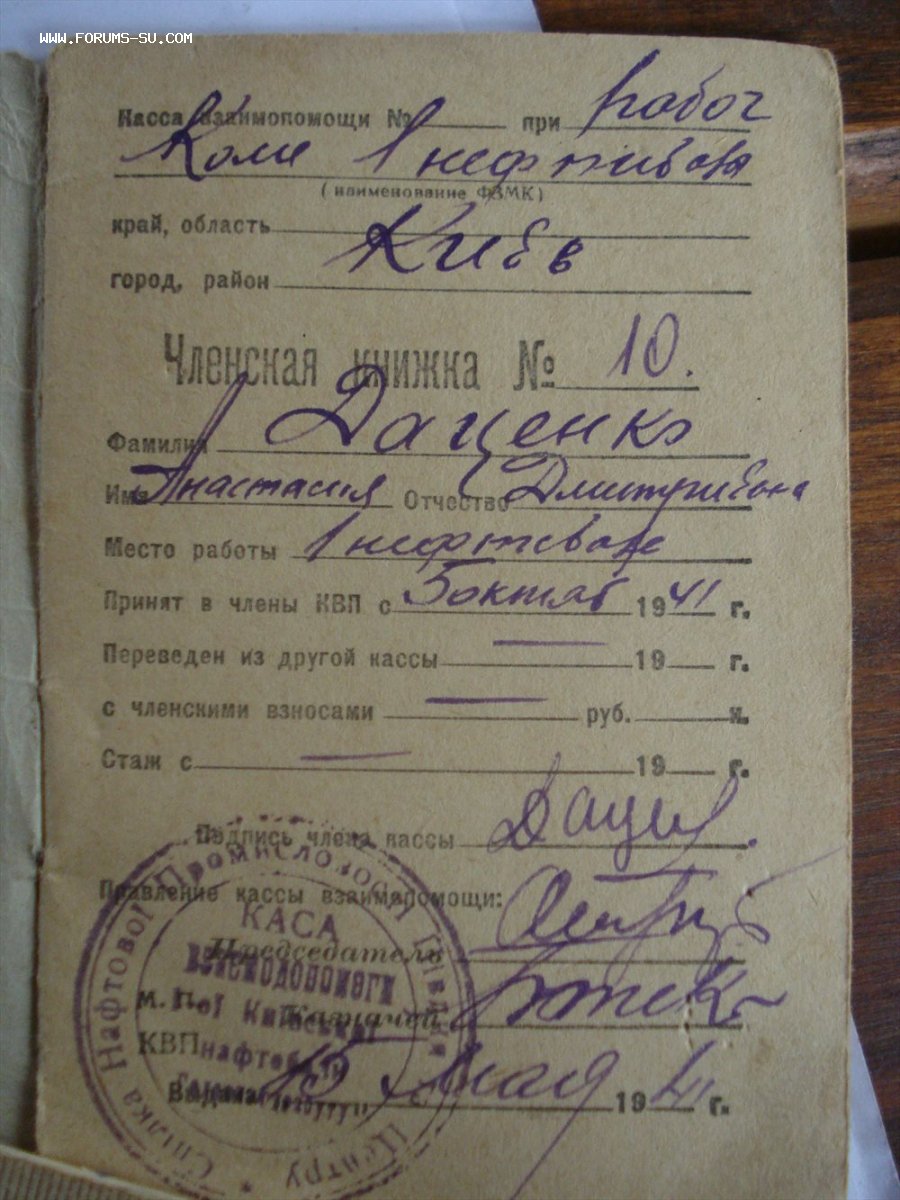 WWW.FORUMS-SU.COM
Касса взаимопомощи № при Рабоч
Коме 1 нефтибаза
(наименование ФЗМК)
край, область
город, район Киев
Членская книжка № 10.
Фамилия Даценко
Имя Анастасия Отчество Дмитриевна
Место работы 1 нефтебаза
Принят в члены КВП с 5 октяб 1941 г.
Переведен из другой кассы — 19 г.
с членскими взносами — руб. к.
Стаж с — 19 г.
Подпись члена кассы Даценко
Правление кассы взаимопомощи:
Председатель
м. П. Казначей
КВП
Выдана 15 мая 1941 г.
Спілка Нафтової Промисловості Півдня
Центру
КАСА
Взаємодопомоги
1-ої Київської
нафтебази